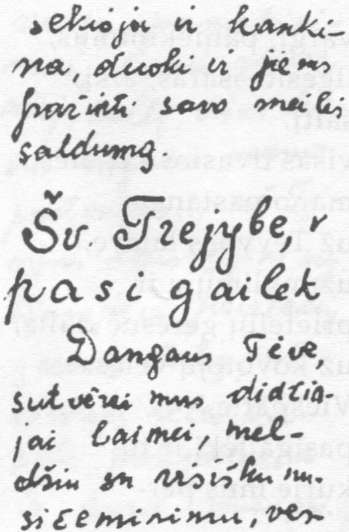 sekioja ir kanki-
na, duoki ir jiems
pažinti savo meilės
saldumą.
Šv. Trejybe,
pasigailėk
Dangaus Tėve,
sutvėrei mus didžia-
jai laimei, mel-
džiu su visišku nu-
sižeminimu, ves-